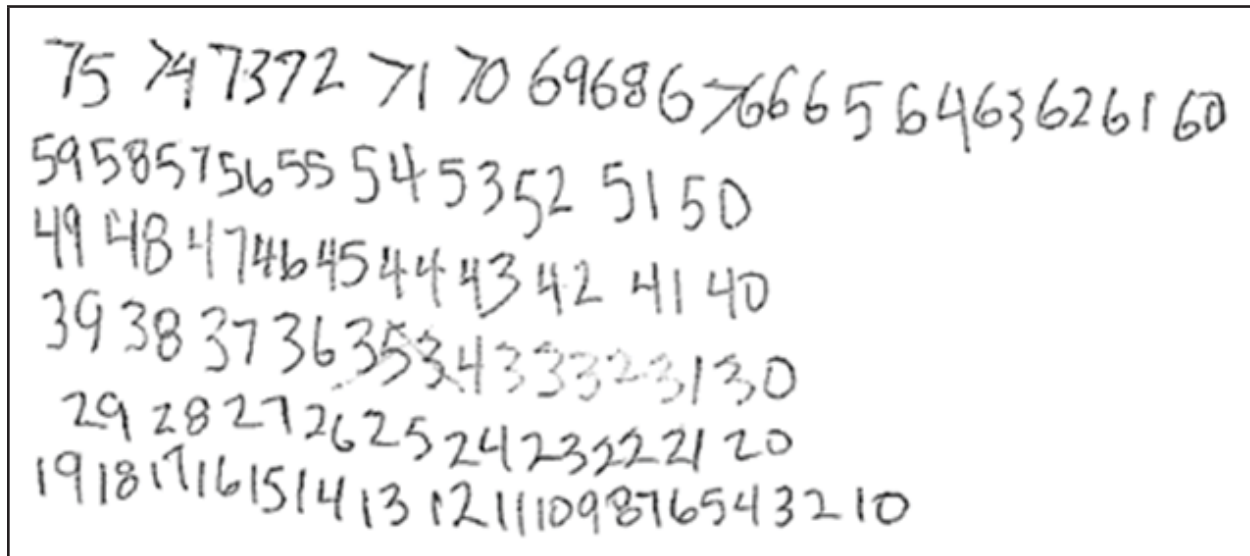 75 74 7372 71 70 69686 766 6 5 64636261 60
59585756 55 54 5352 51 50
49 48 47464544 43 42 41 40
39 38 37 36 353433323130
29 28 27 26 25 24 23222120
191817161514 13 12 11109876543210